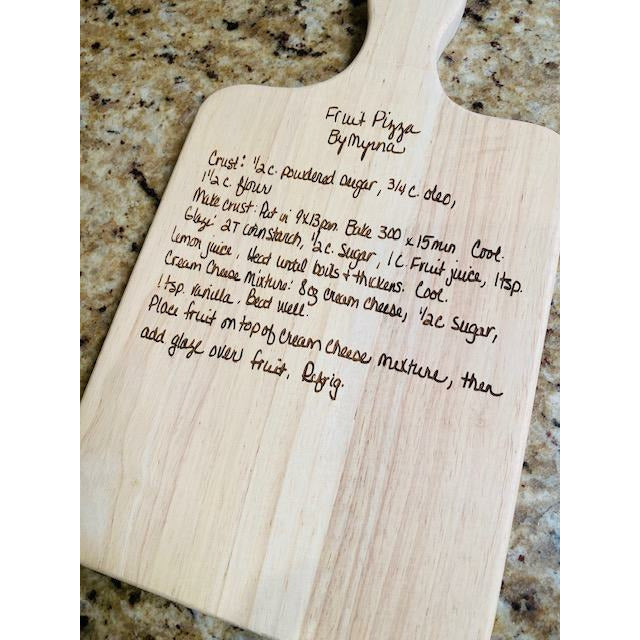 Fruit Pizza
By Myrna
Crust: 1/2 c. powdered sugar, 3/4 c. oleo,
1 1/2 c. flour
Make crust. Pat in 9x13 pan. Bake 300 x 15 min Cool.
Glaze: 2T cornstarch, 1/2 c. sugar, 1 c. Fruit juice, 1 tsp.
lemon juice. Heat until boils + thickens. Cool.
Cream Cheese Mixture: 8 oz cream cheese, 1/2 c sugar,
1 tsp. vanilla. Beat well.
Place fruit on top of cream cheese mixture, then
add glaze over fruit. Refrig.